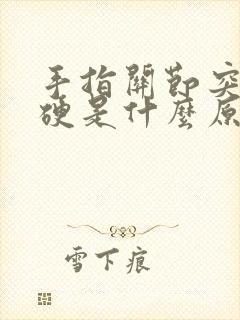 手指關節突
硬是什麼原
雪下痕